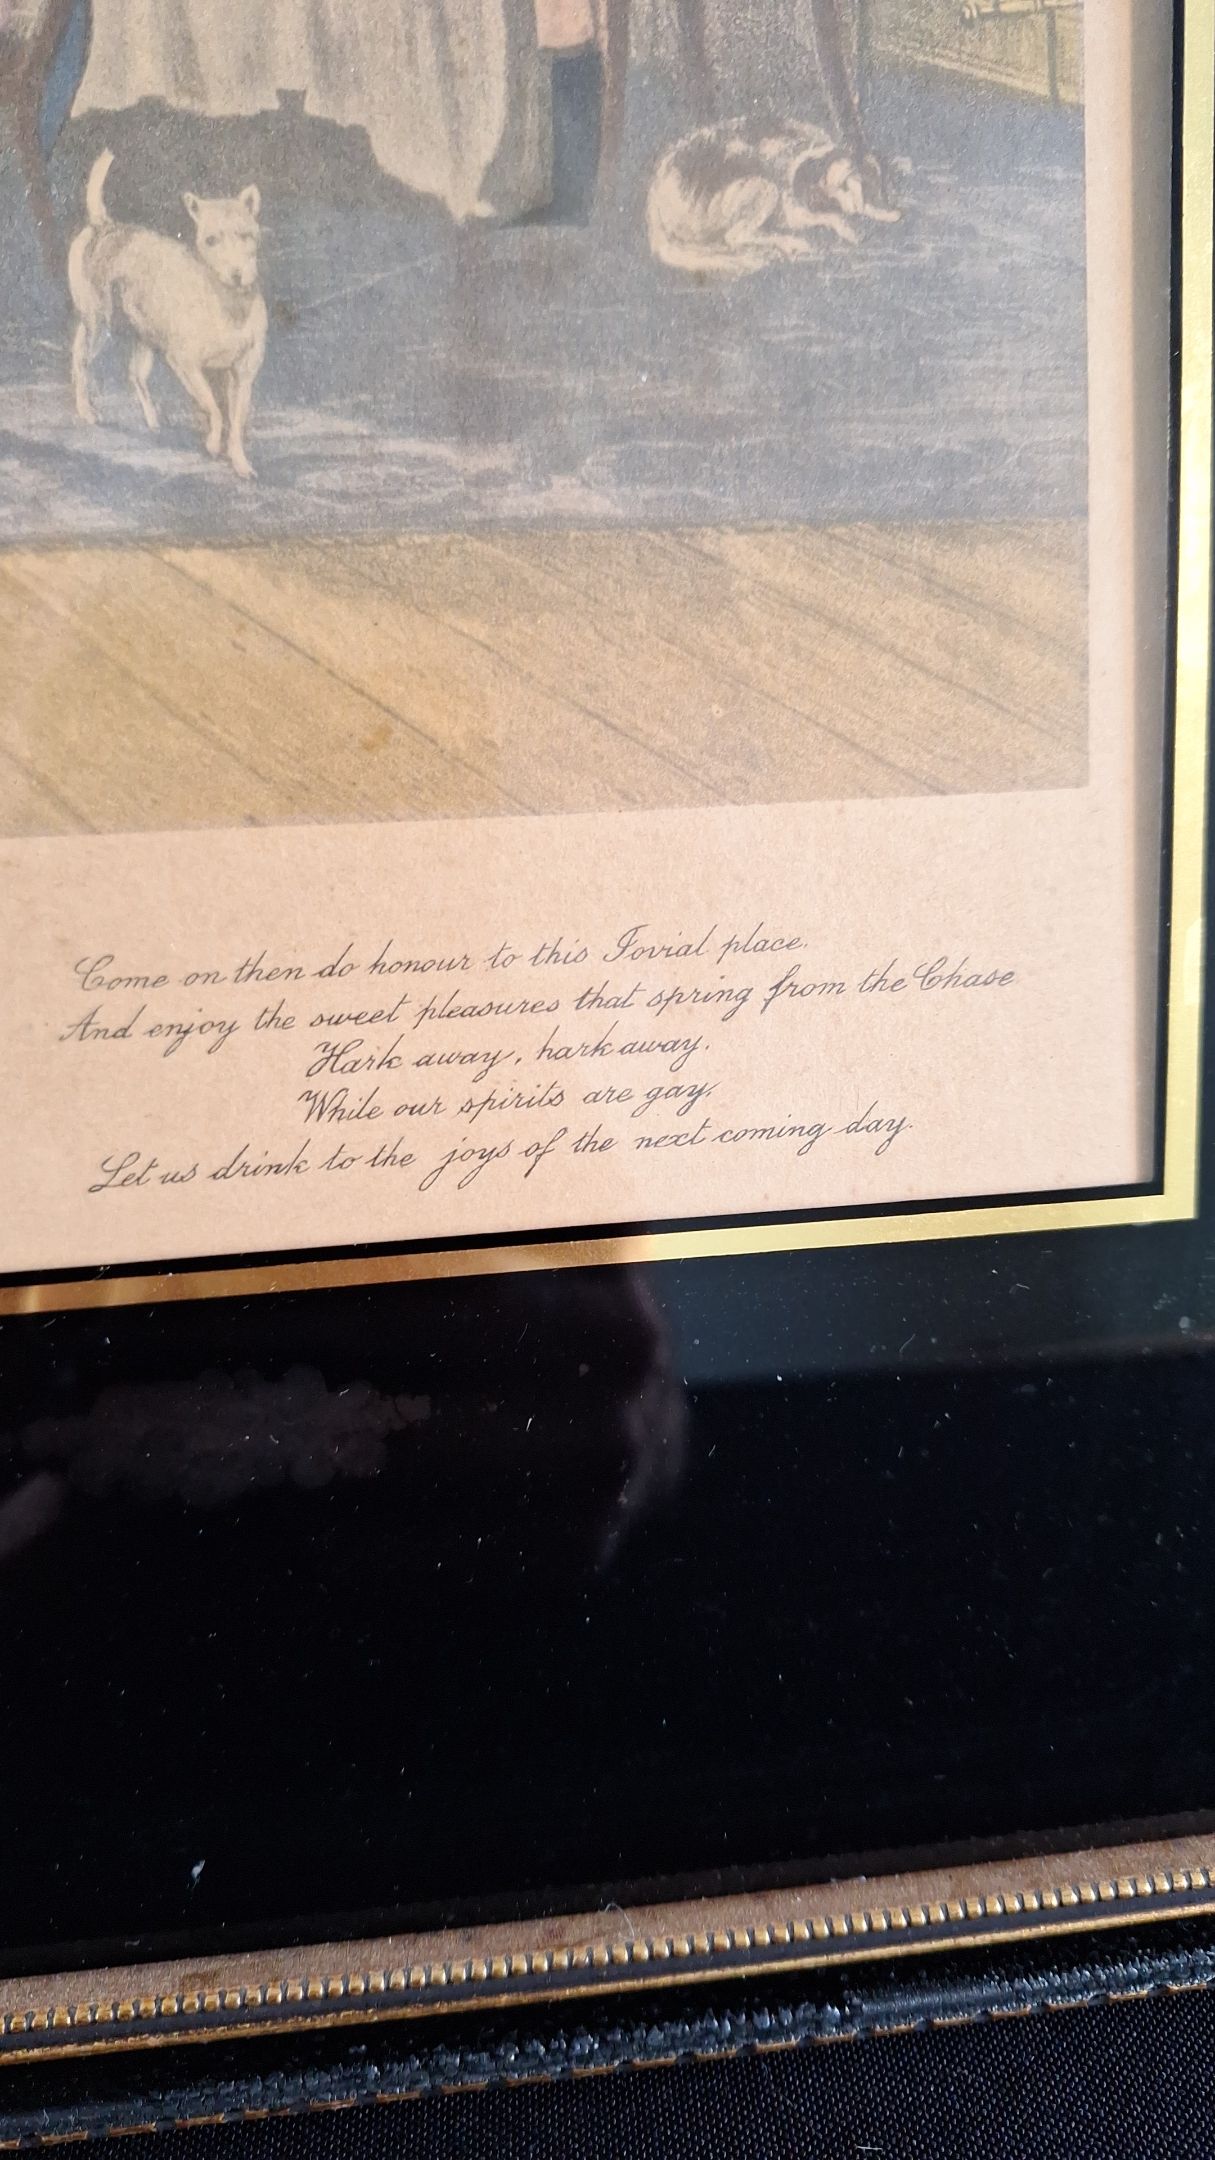 Come on then do honour to this Jovial place.
And enjoy the sweet pleasures that spring from the Chase
Hark away, hark away.
While our spirits are gay.
Let us drink to the joys of the next coming day.